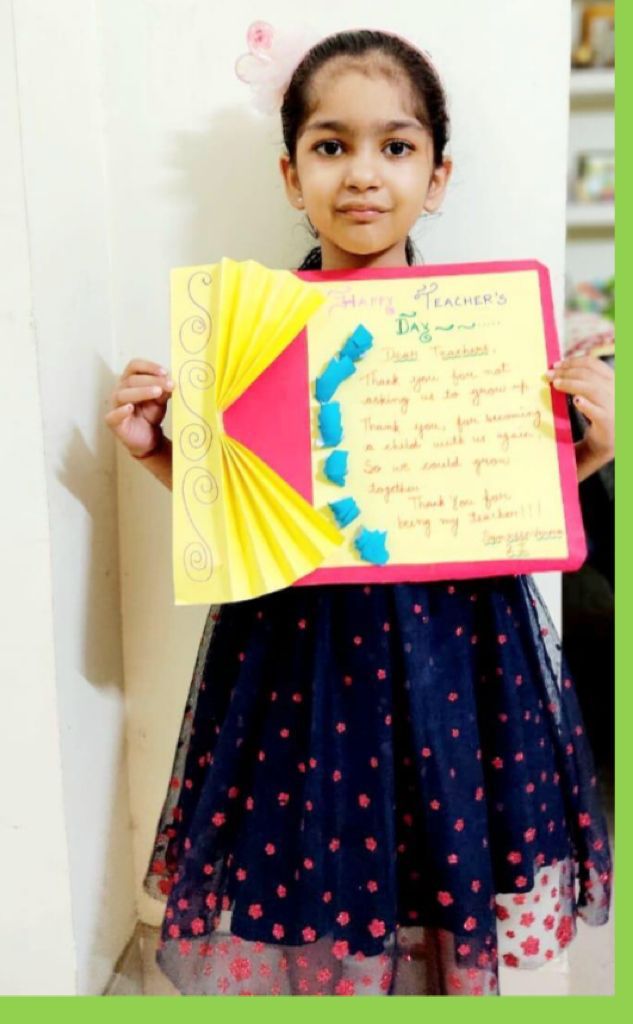 Happy Teacher's
Day ~ ~ .....
Dear Teachers,
Thank you for not
asking us to grow up
Thank you, for becoming
a child with us again.
So we could grow
together.
Thank You for
being my teacher!!!